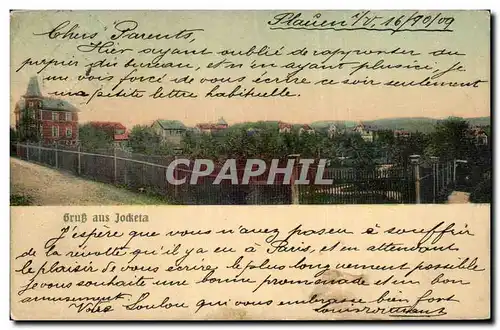 Plauen i/V, 16/90/09
Chers Parents,
Hier ayant oublié de rapporter du
papier du bureau, et n'en ayant plus ici, je
me vois forcé de vous écrire ce soir seulement
ma petite lettre habituelle.
CPAPHIL
Gruß aus Jocketa
J'espère que vous n'avez pas eu à souffrir
de la révolte qu'il y a eu à Paris, et en attendant
le plaisir de vous écrire le plus longuement possible
je vous souhaite une bonne promenade et un bon
amusement. Votre Loulou qui vous embrasse bien fort